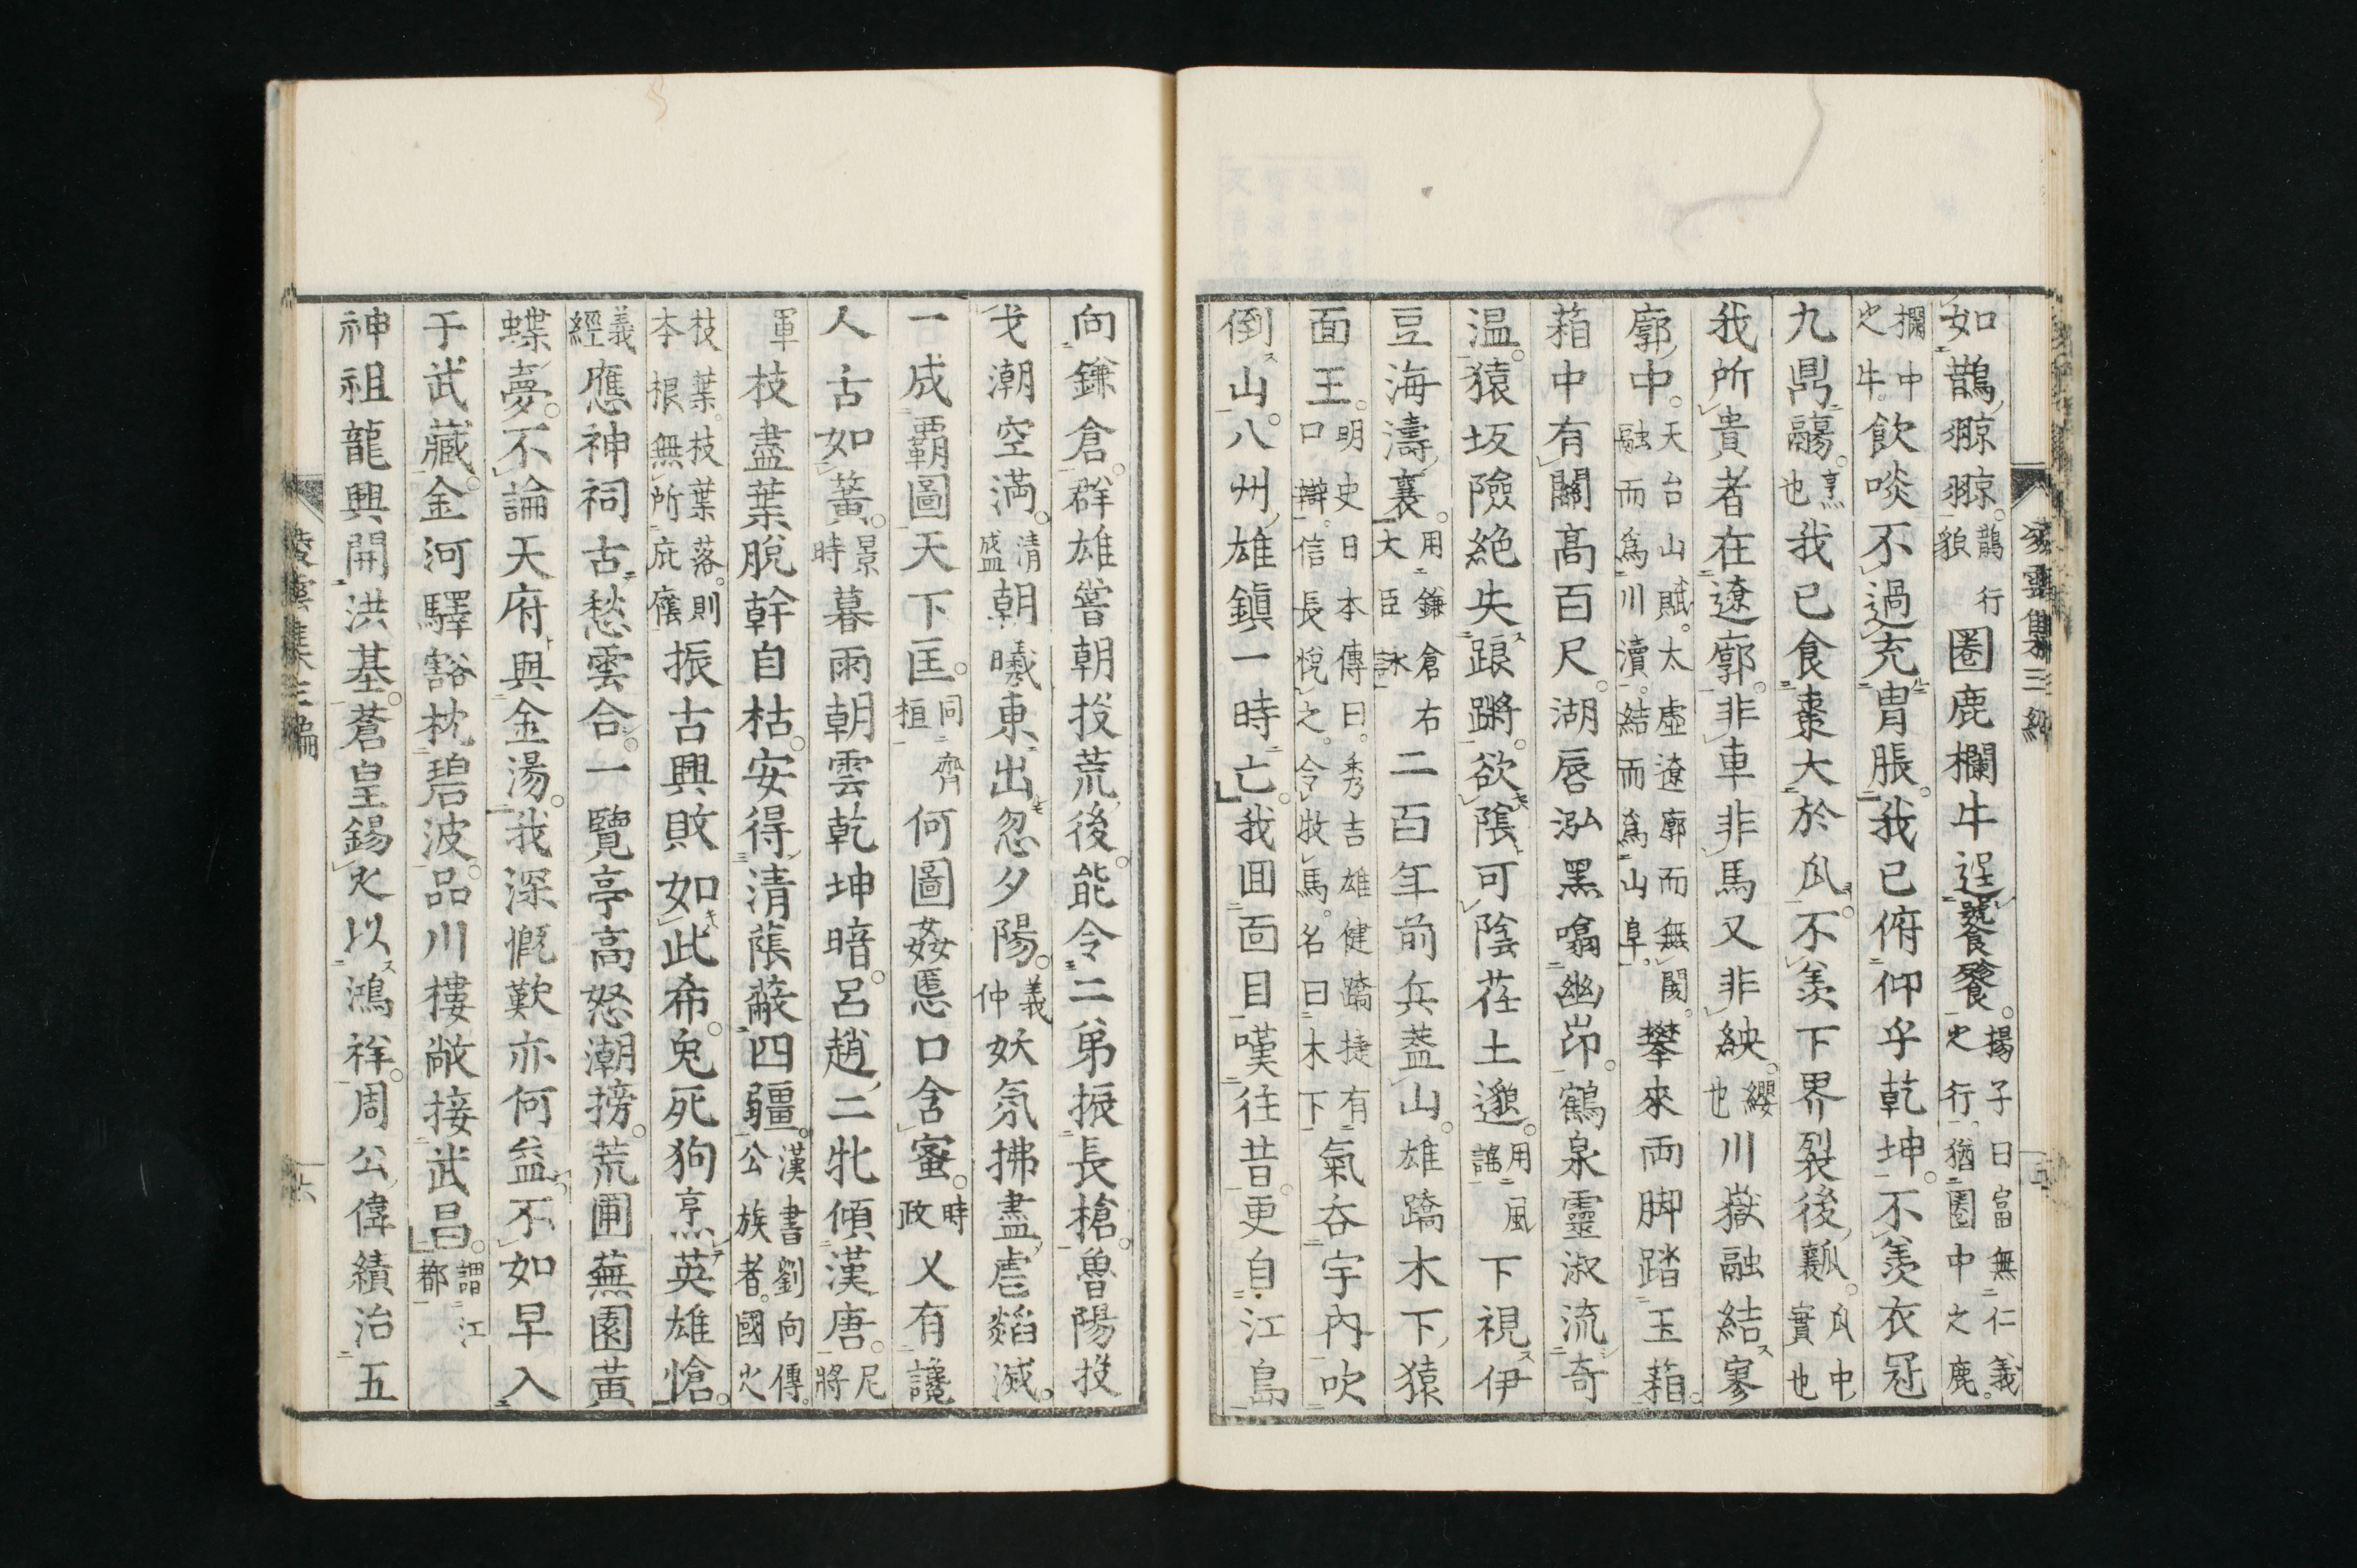 如鵲翏翏鵲行貌圈鹿欄牛逞饕餮揚子曰富無仁義之行猶圈中之鹿
欄中之牛飲啖不過充胃脹我已俯仰乎乾坤不羨衣冠
九鼎鬺烹也我已食棗大於瓜不羨下界裂後瓤瓜中實也
我所貴者在遼廓非車非馬又非紻纓也川嶽融結寥
廓中天台山賦太虛遼廓而無閡融而爲川瀆結而爲山阜攀來両脚踏玉箱
箱中有關高百尺湖唇泓黑噏幽峁鶴泉靈淑流奇
温猿坂險絶失踉蹡欲隕可陰荏土邈用風謡下視伊
豆海濤襄用鎌倉右大臣詠二百年前兵盖山雄蹻木下猿
面王明史日本傳曰秀吉雄健蹻捷有口辯信長悅之令牧馬名曰木下氣吞宇内吹
倒山八州雄鎮一時亡我囬面目嘆往昔更自江島
向鎌倉群雄嘗朝投荒後能令二弟振長槍魯陽投
戈潮空満清盛朝曦東出忽夕陽義仲妖氛拂盡虐熖滅
一成霸圖天下匡同齊桓何圖姦慝口含蜜時政乂有讒
人舌如簧景時暮雨朝雲乾坤暗呂趙二牝傾漢唐尼將
軍枝盡葉脫幹自枯安得清蔭蔽四疆漢書劉向傳公族者國之
枝葉枝葉落則本根無所庇廕振古興敗如此希兔死狗烹英雄愴
義經應神祠古愁雲合一覽亭高怒潮搒荒圃蕪園黄
蝶夢不論天府與金湯我深慨歎亦何益不如早入
于武藏金河驛豁枕碧波品川樓敞接武昌謂江都
神祖龍興開洪基蒼皇錫之以鴻祥周公偉績治五